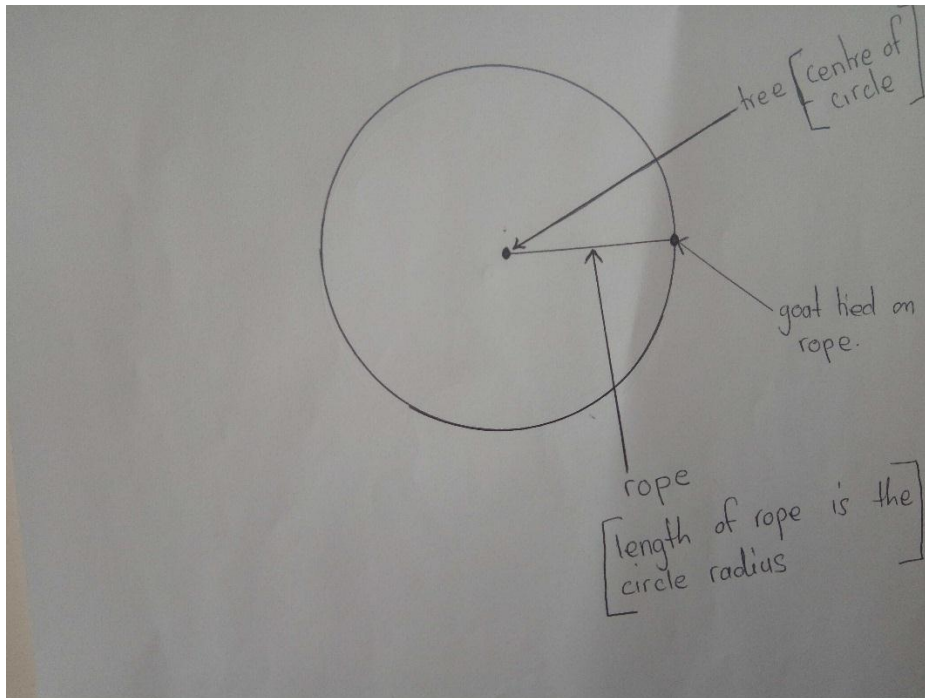 tree [centre of
circle]
goat tied on
rope.
rope
[length of rope is the
circle radius]